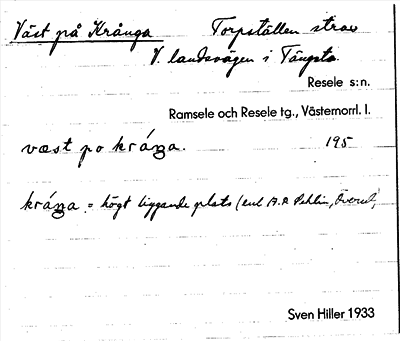 Väst på Krånga Torpställen strax
V. landsvägen i Tängsta.
Resele s:n.
Ramsele och Resele tg., Västernorrl. l.
væst po kráŋa. 195
kráŋa = högt liggande plats (enl A.P. Sehlin,
Sven Hiller 1933